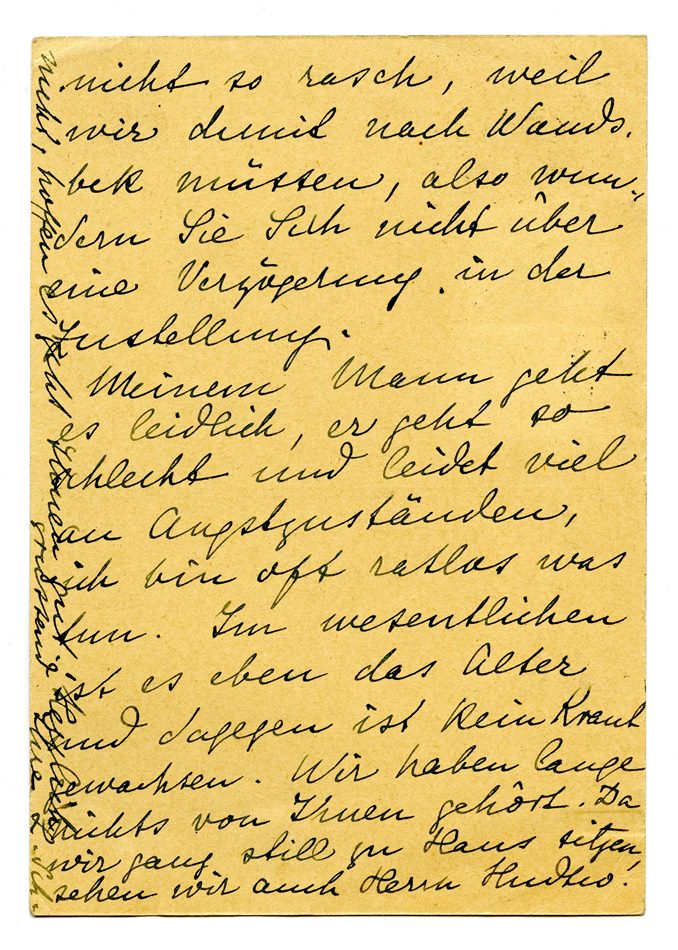 nicht so rasch, weil
wir damit nach Wands-
bek müssen, also wun-
dern Sie Sich nicht über
eine Verzögerung in der
Zustellung.
Meinem Mann geht
es leidlich, er geht so
schlecht und leidet viel
an Angstzuständen,
ich bin oft ratlos was
tun. Im wesentlichen
ist es eben das Alter
und dagegen ist kein Kraut
gewachsen. Wir haben lange
nichts von Ihnen gehört. Da
wir ganz still zu Haus sitzen,
sehen wir auch Herrn
nicht, hoffen es geht Ihnen gut. Herzlichst
grüssend Ihre L. Sch.